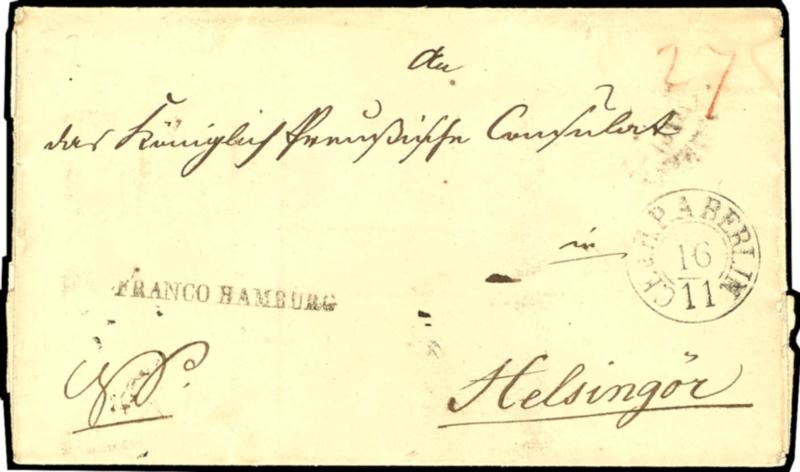 An
27
das Königlich Preußische Consulat
in
BERLIN
16
11
FRANCO HAMBURG
Helsingör